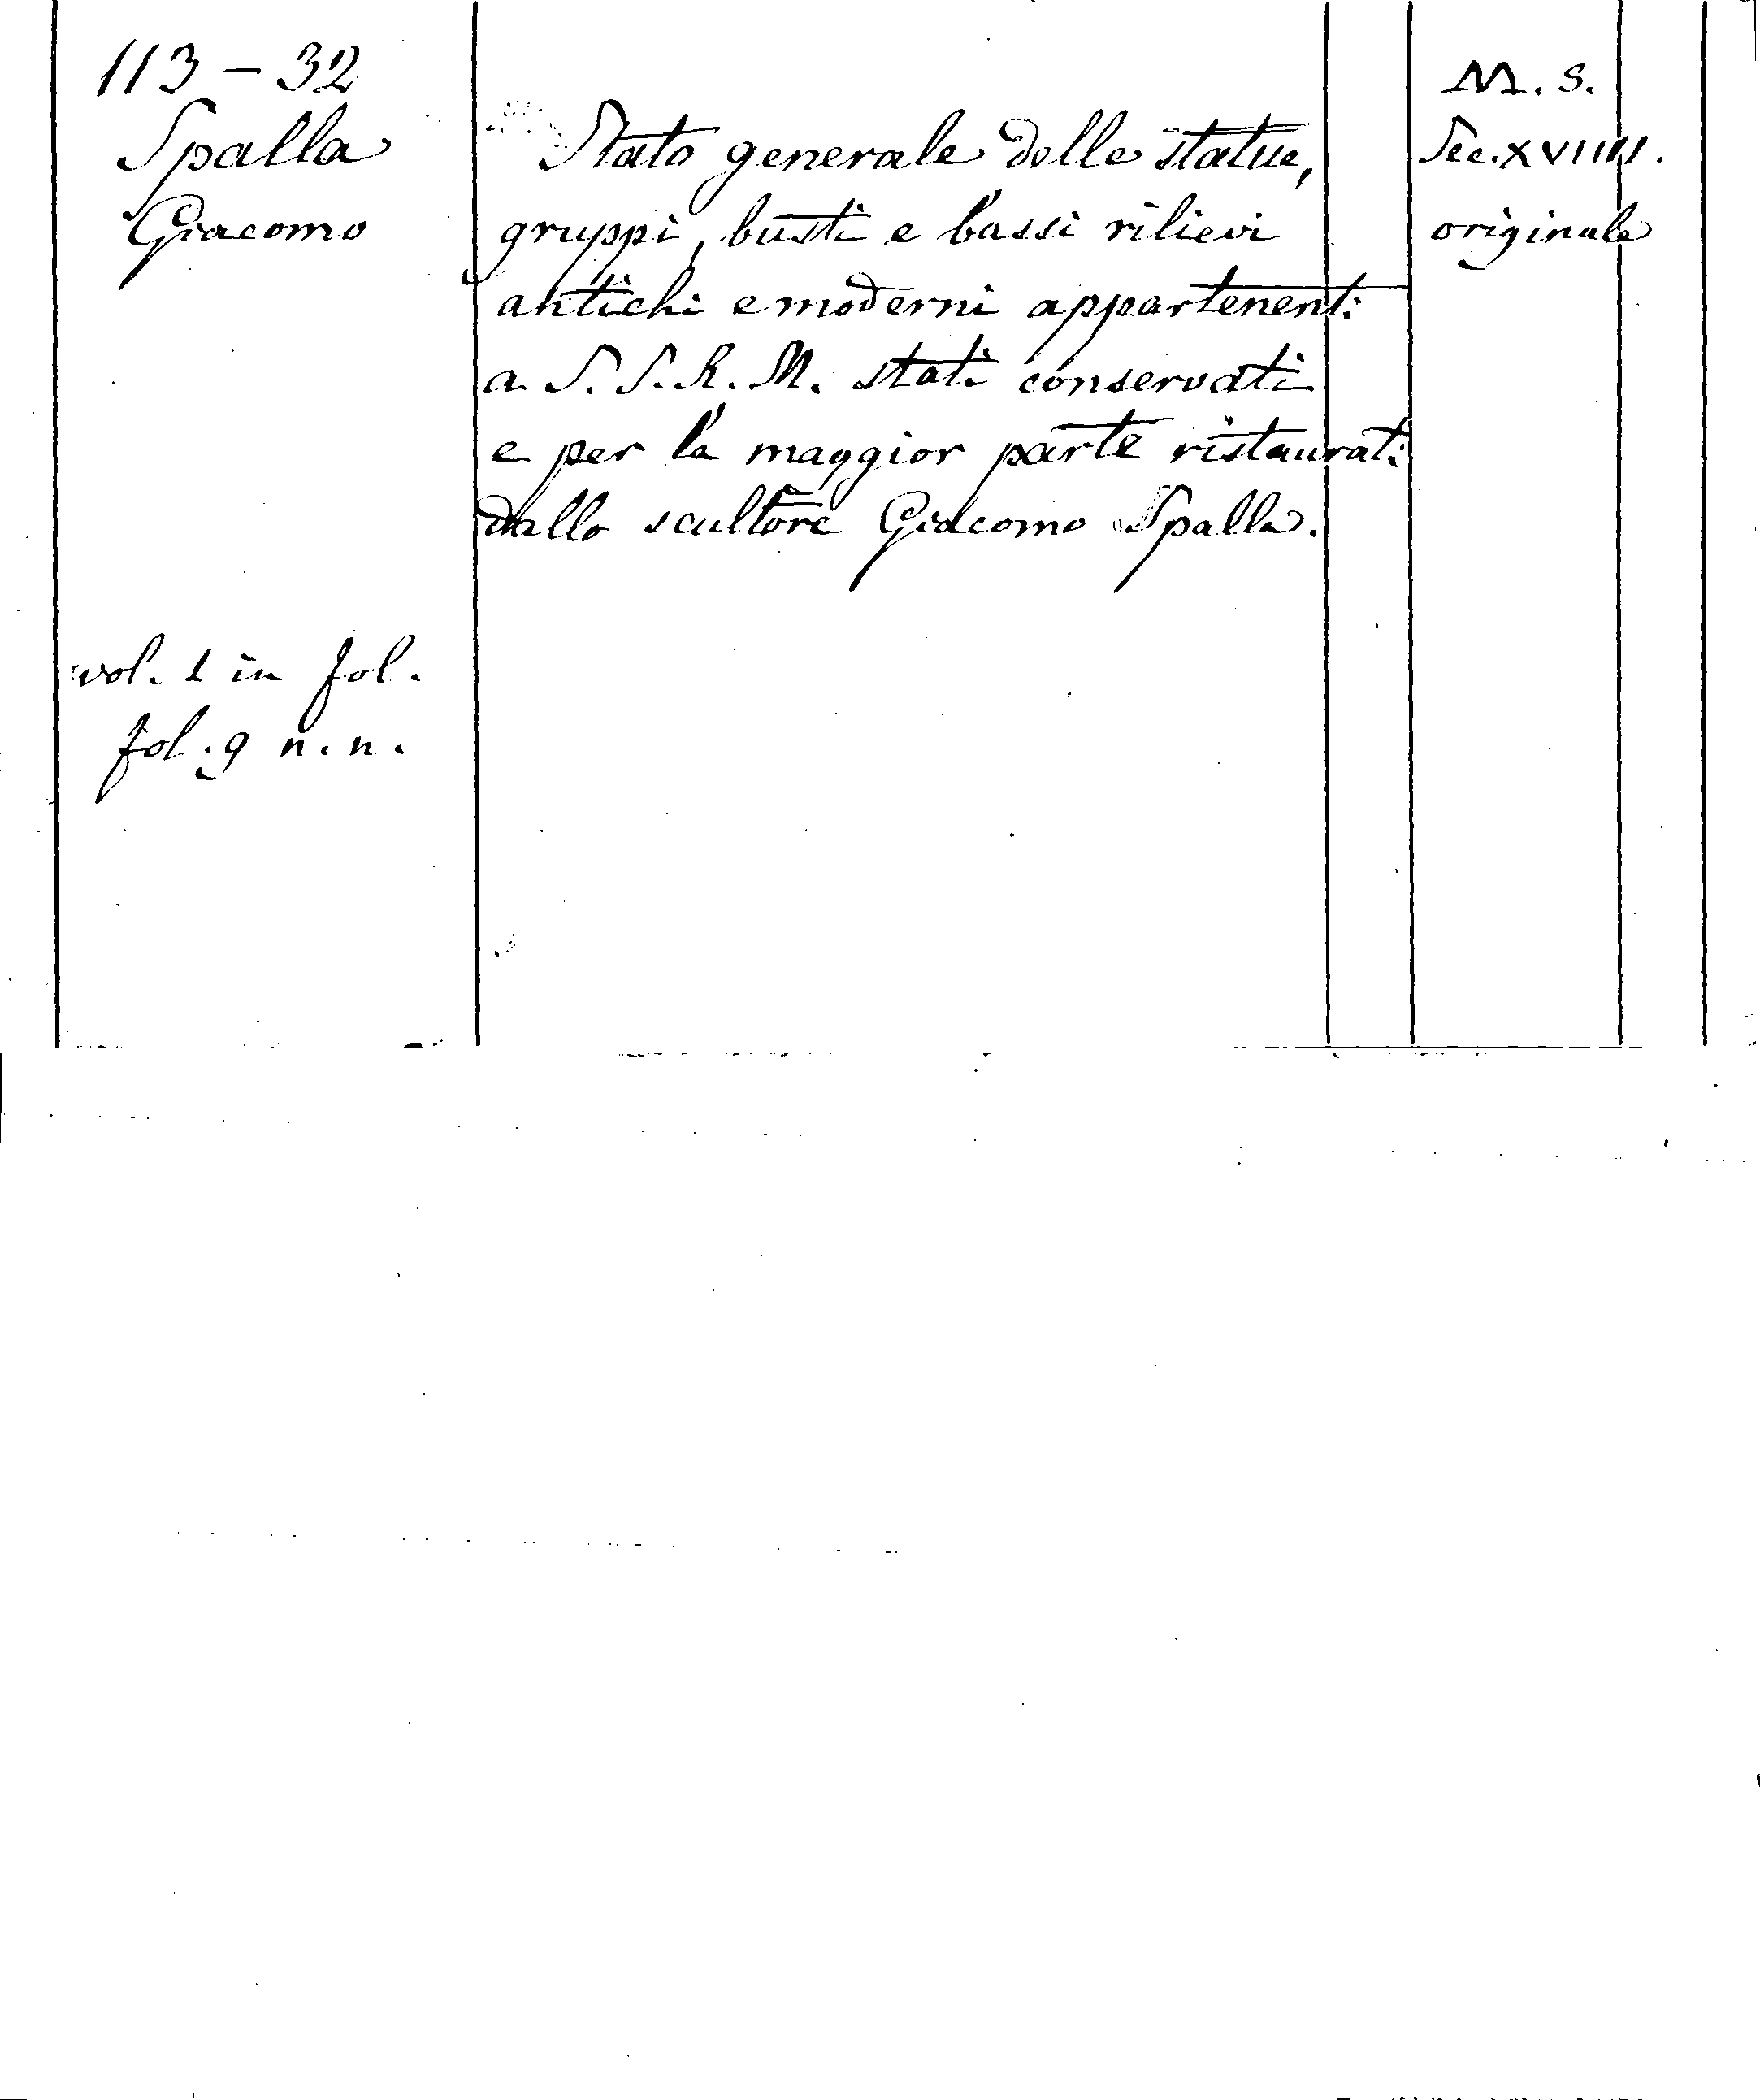 113 - 32
Spalla
Giacomo
vol. 1 in fol.
fol. 9 n. n.
Stato generale delle statue,
gruppi, busti e bassi rilievi
antichi e moderni appartenenti
a S. S. R. M. stati conservati
e per la maggior parte ristaurati
dallo scultore Giacomo Spalla.
M. S.
Sec. XVIIII.
originale